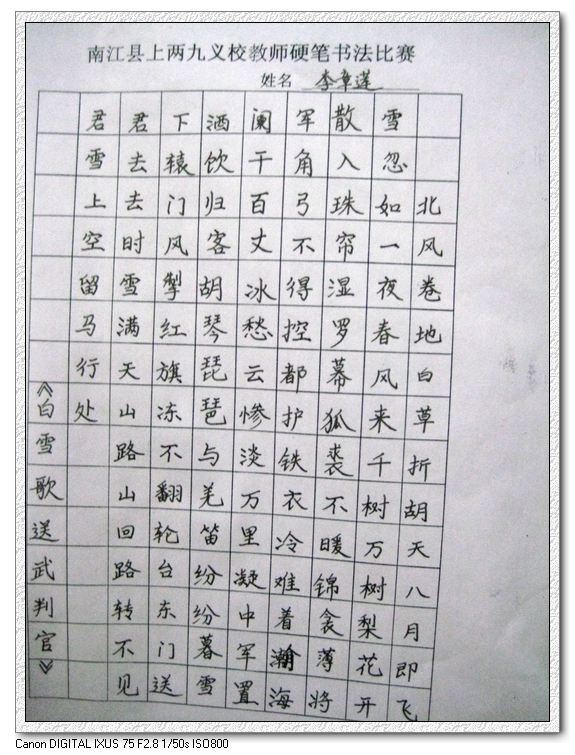 南江县上两九义校教师硬笔书法比赛
姓名 李章莲
北风卷地白草折胡天八月即飞
雪忽如一夜春风来千树万树梨花开
散入珠帘湿罗幕狐裘不暖锦衾薄将
军角弓不得控都护铁衣冷难着瀚海
阑干百丈冰愁云惨淡万里凝中军置
酒饮归客胡琴琵琶与羌笛纷纷暮雪
下辕门风掣红旗冻不翻轮台东门送
君去去时雪满天山路山回路转不见
君雪上空留马行处
《白雪歌送武判官》
Canon DIGITAL IXUS 75 F2.8 1/50s ISO800